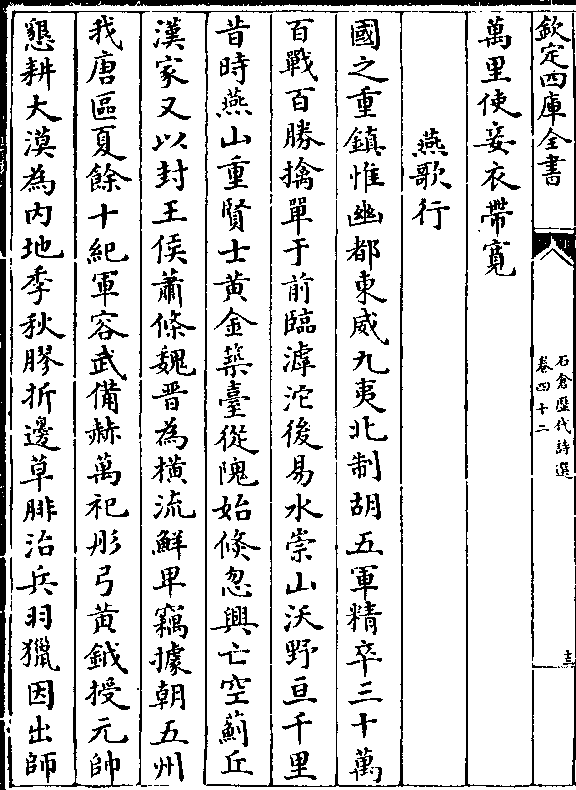 欽定四庫全書
石倉歷代詩選
卷四十二
十三
萬里使妾衣帶寬
燕歌行
國之重鎮惟幽都東威九夷北制胡五軍精卒三十萬
百戰百勝擒單于前臨滹沱後易水崇山沃野亘千里
昔時燕山重賢士黃金築臺從隗始倐忽興亡空薊丘
漢家又以封王侯蕭條魏晉為橫流鮮卑竊據朝五州
我唐區夏餘十紀軍容武備赫萬祀彤弓黃鉞授元帥
懇耕大漠為内地季秋膠折邊草腓治兵羽獵因出師